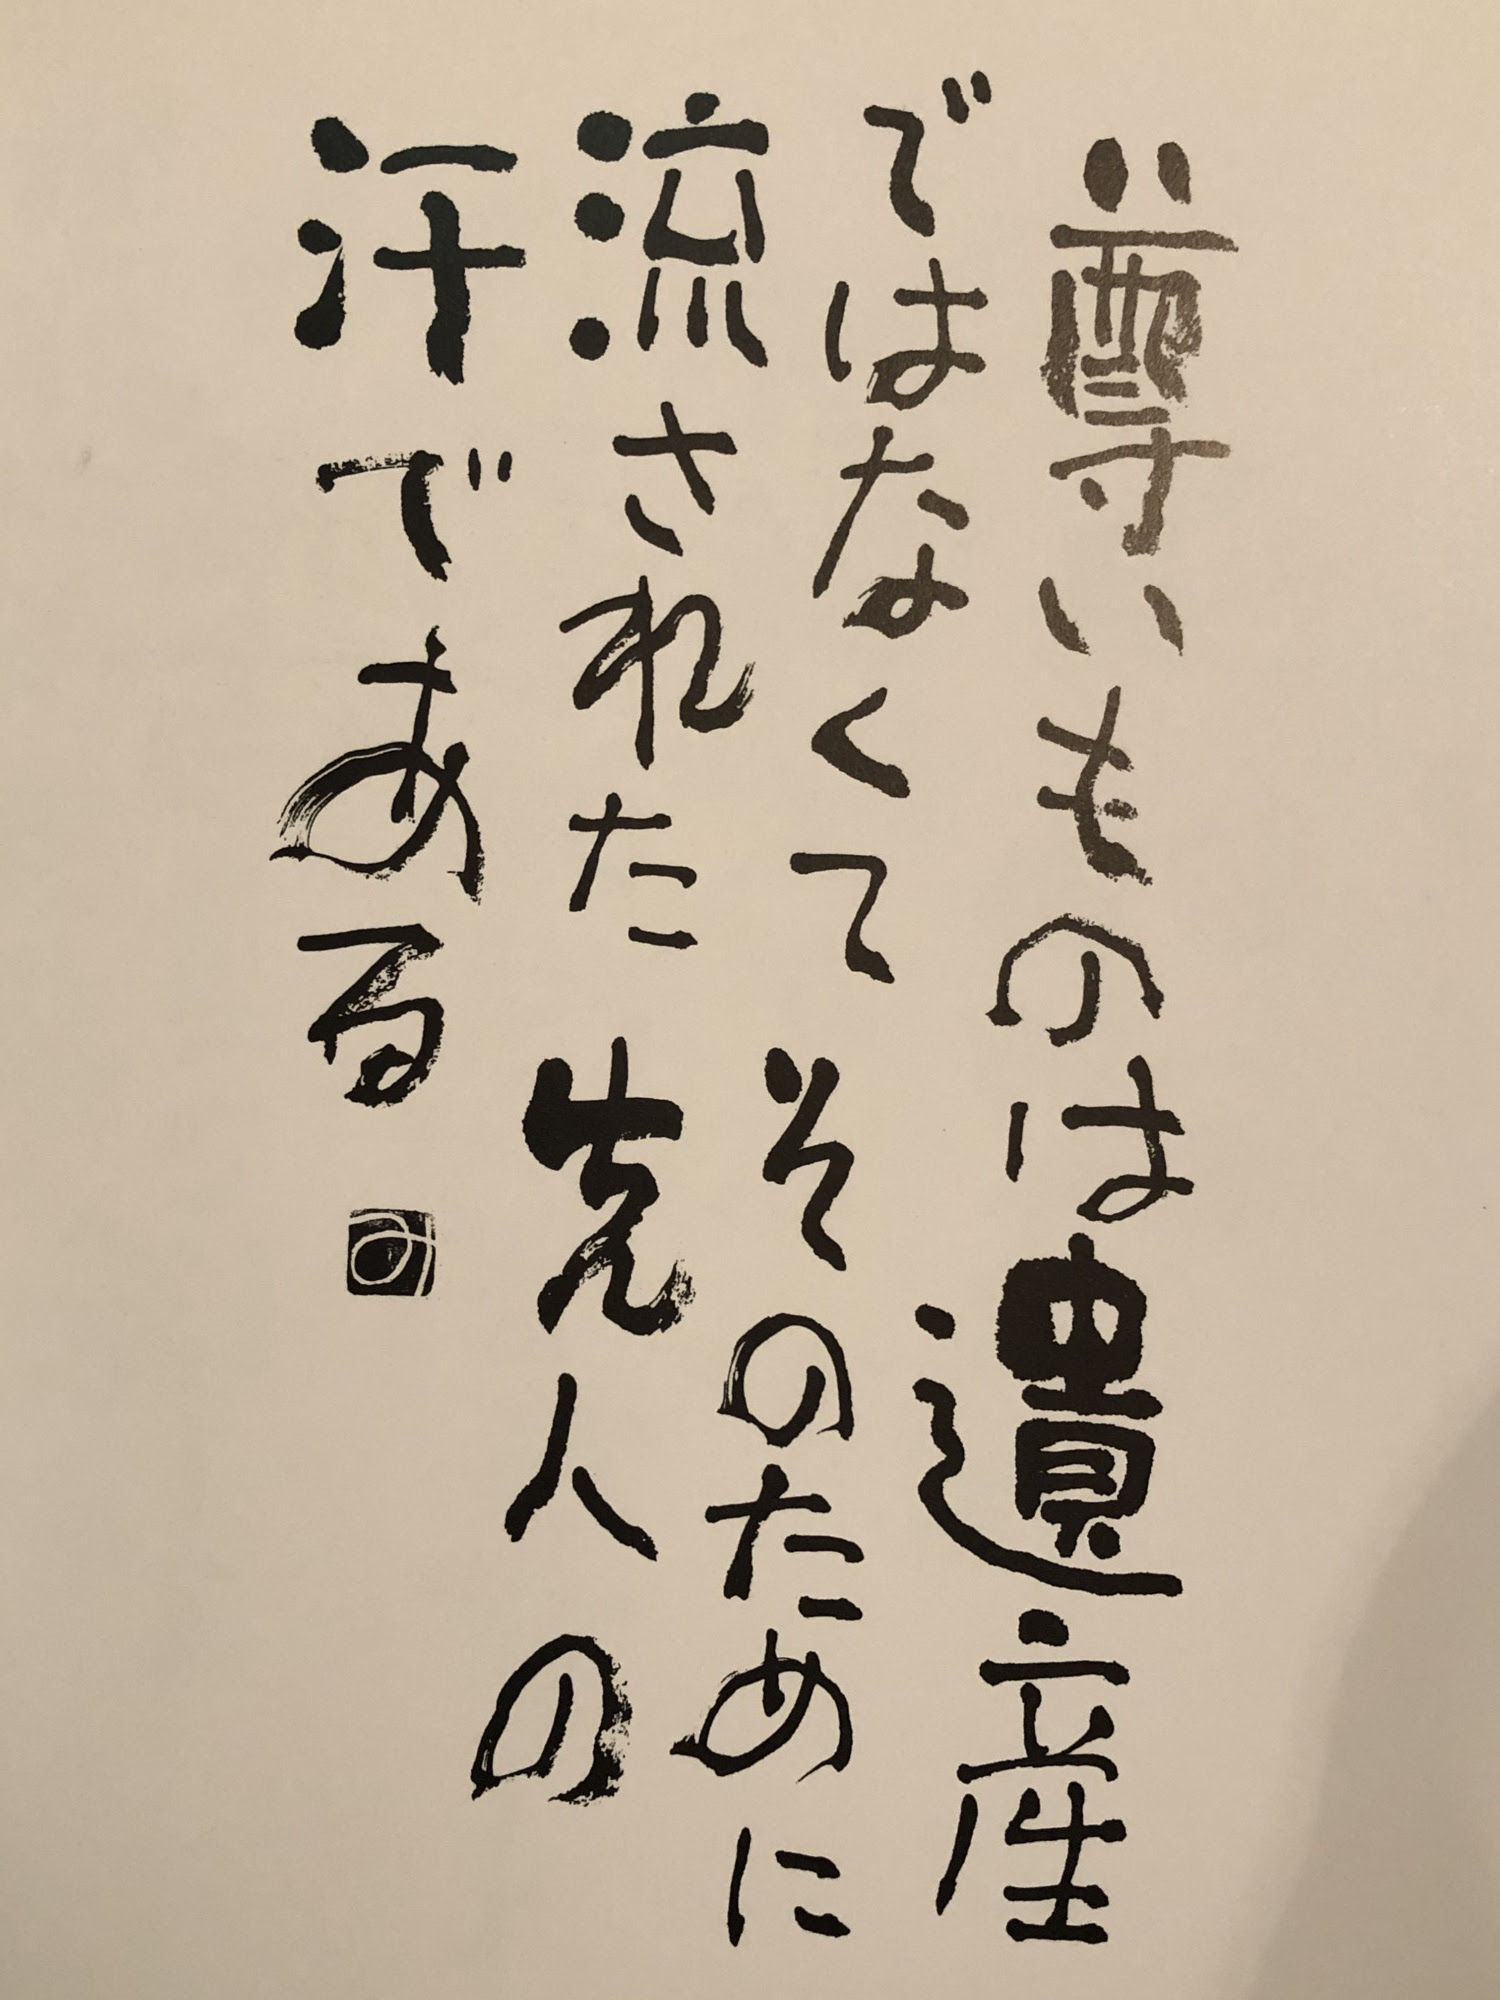 尊いものは遺産
ではなくて そのために
流された 先人の
汗である